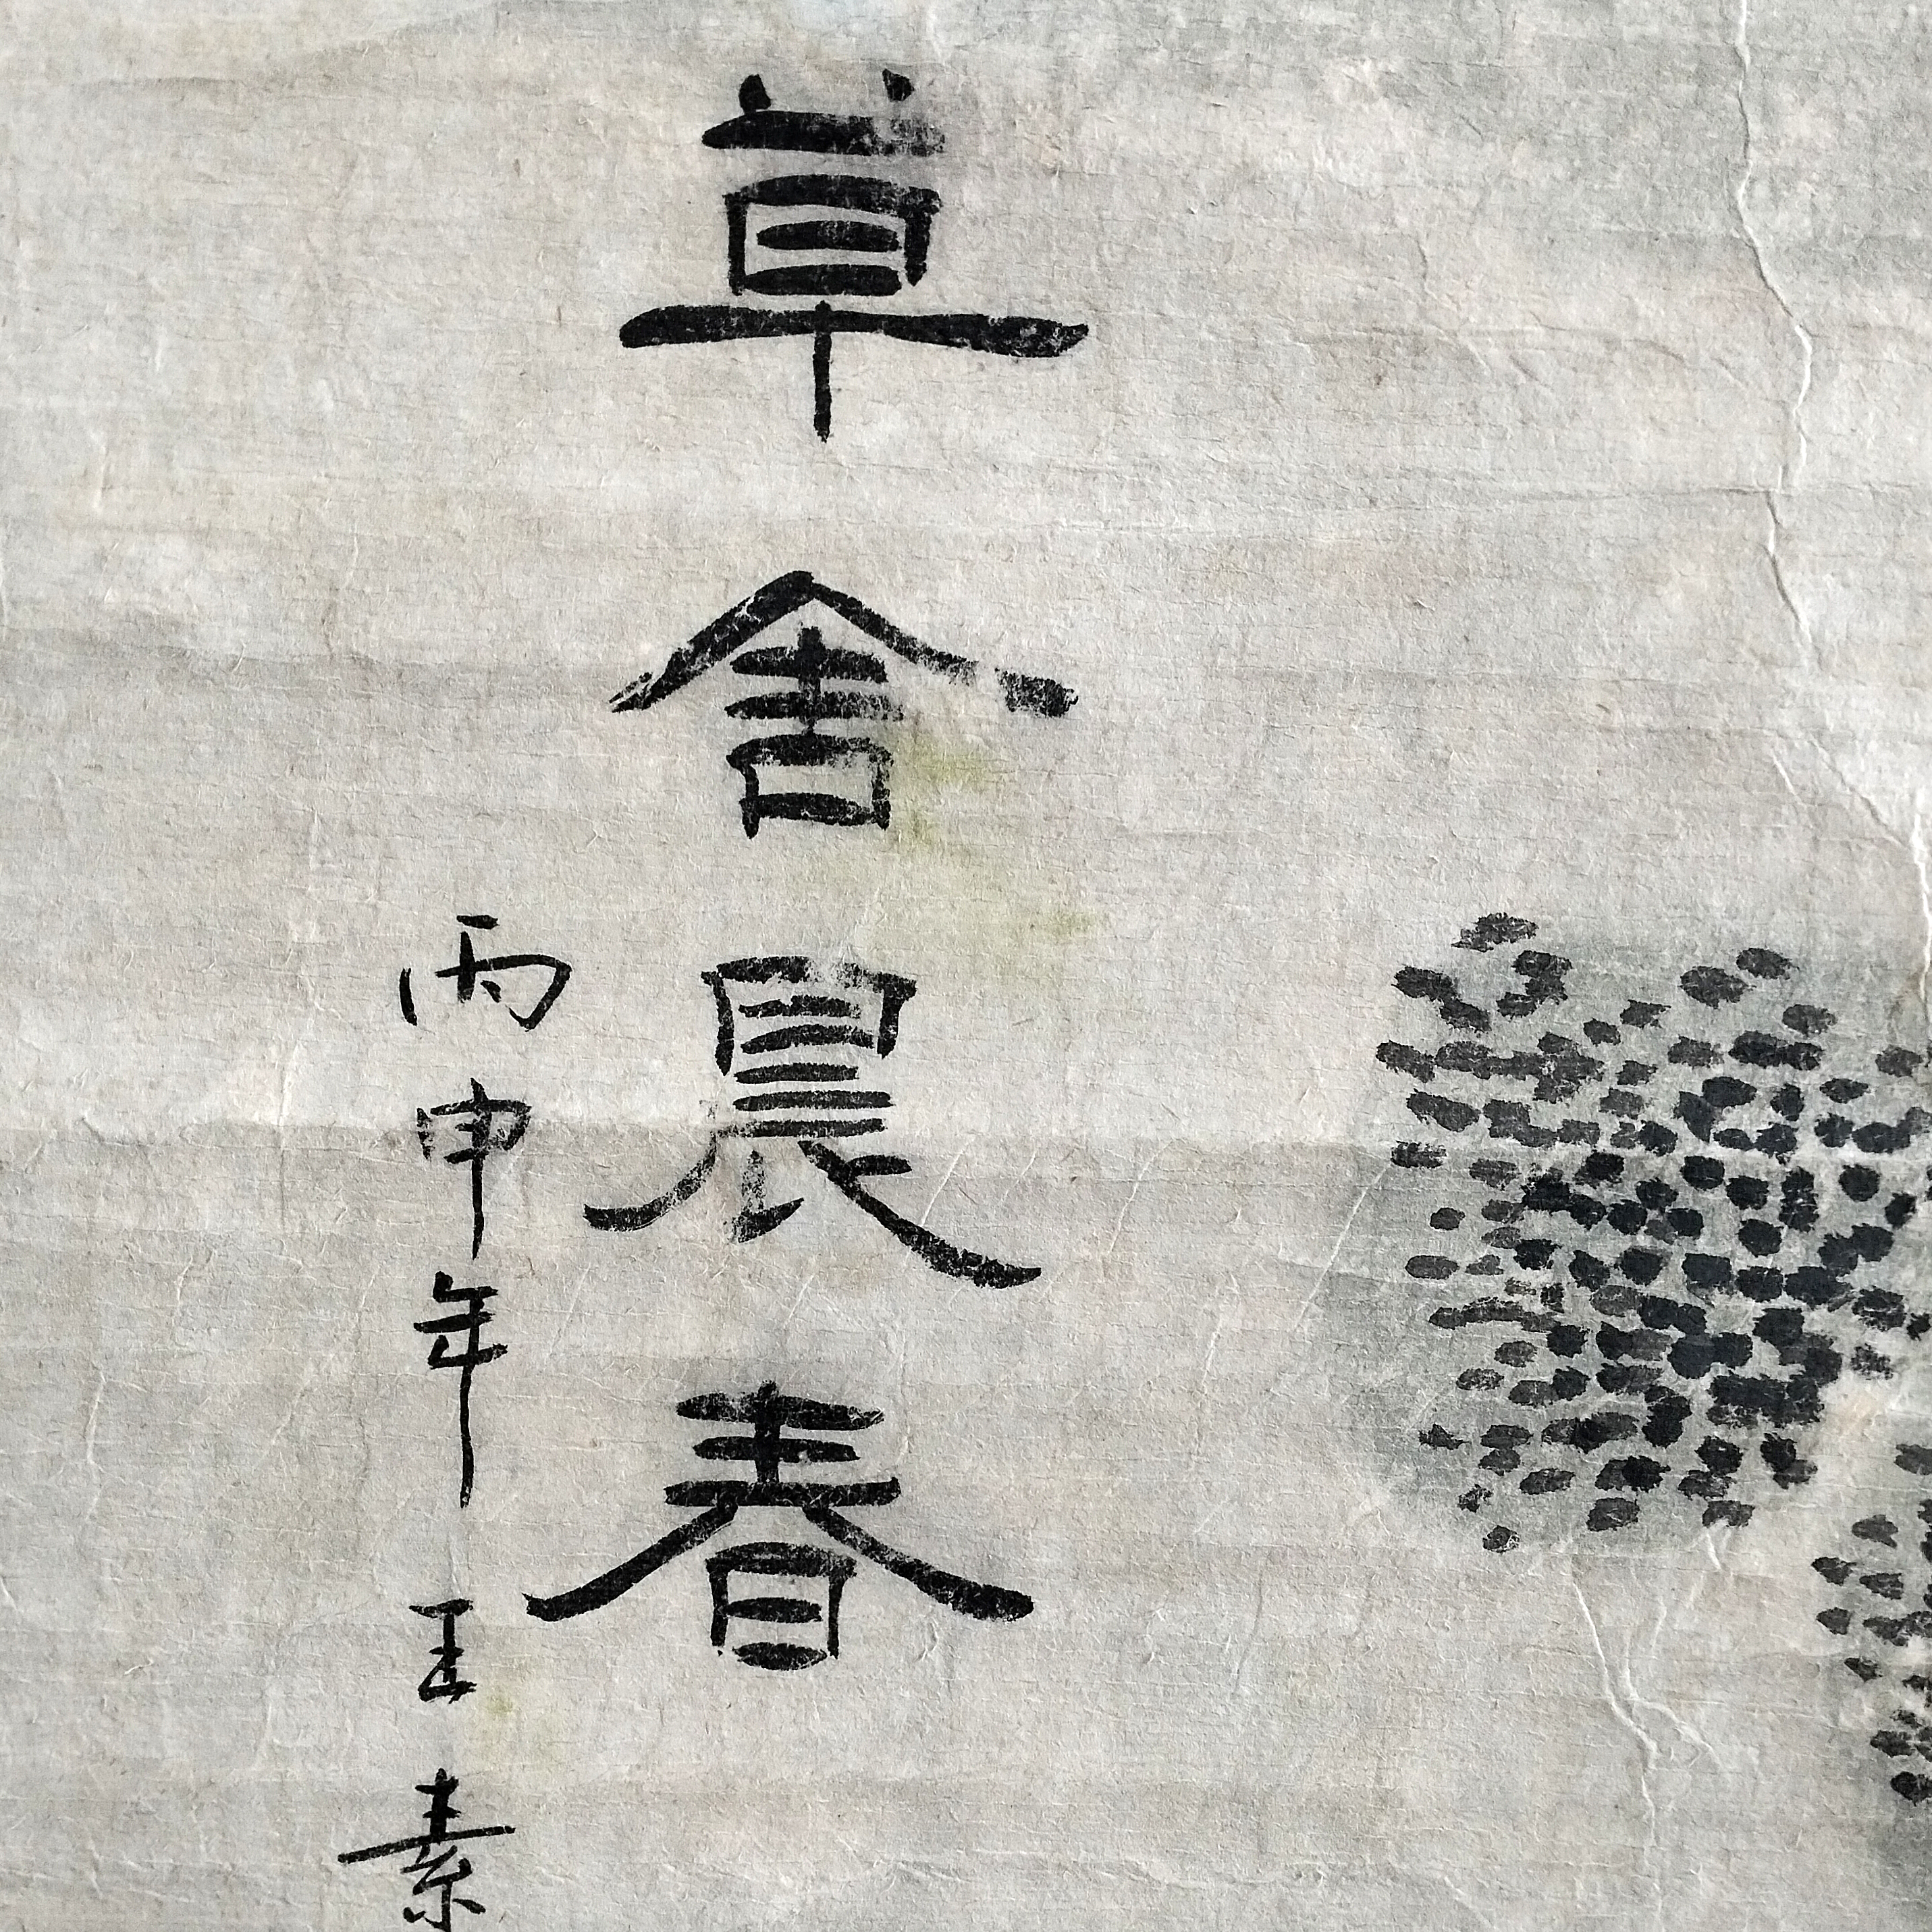 草舍晨春
丙申年 王素